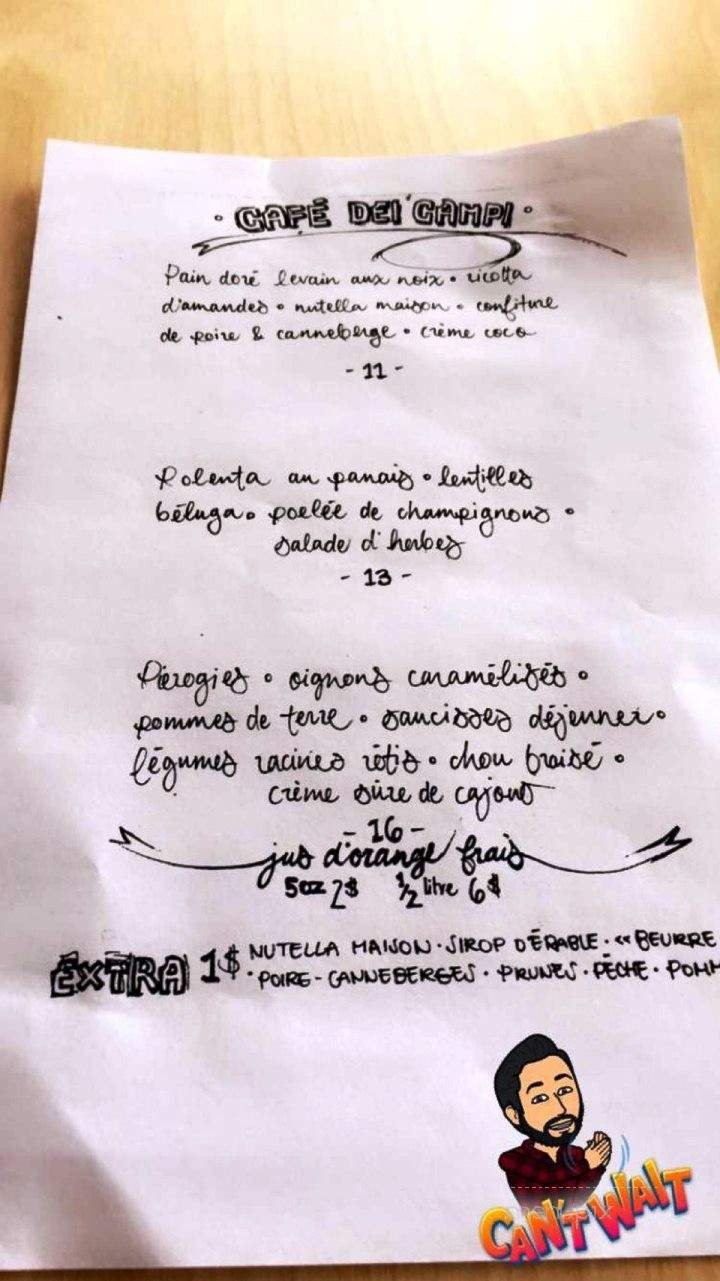 • CAFÉ DEI CAMPI •
Pain doré levain aux noix • ricotta
d'amandes • nutella maison • confiture
de poire & canneberge • crème coco
- 11 -
Polenta au panais • lentilles
béluga • poelée de champignons •
salade d'herbes
- 13 -
Pierogies • oignons caramélisés •
pommes de terre • saucisses déjeuner •
légumes racines rôtis • chou braisé •
crème sûre de cajous
- 16 -
jus d'orange frais
5oz 2$ 1/2 litre 6$
EXTRA 1$ NUTELLA MAISON • SIROP D'ÉRABLE • «BEURRE
• POIRE - CANNEBERGES • PRUNES • PÊCHE • POMM
CAN'T WAIT